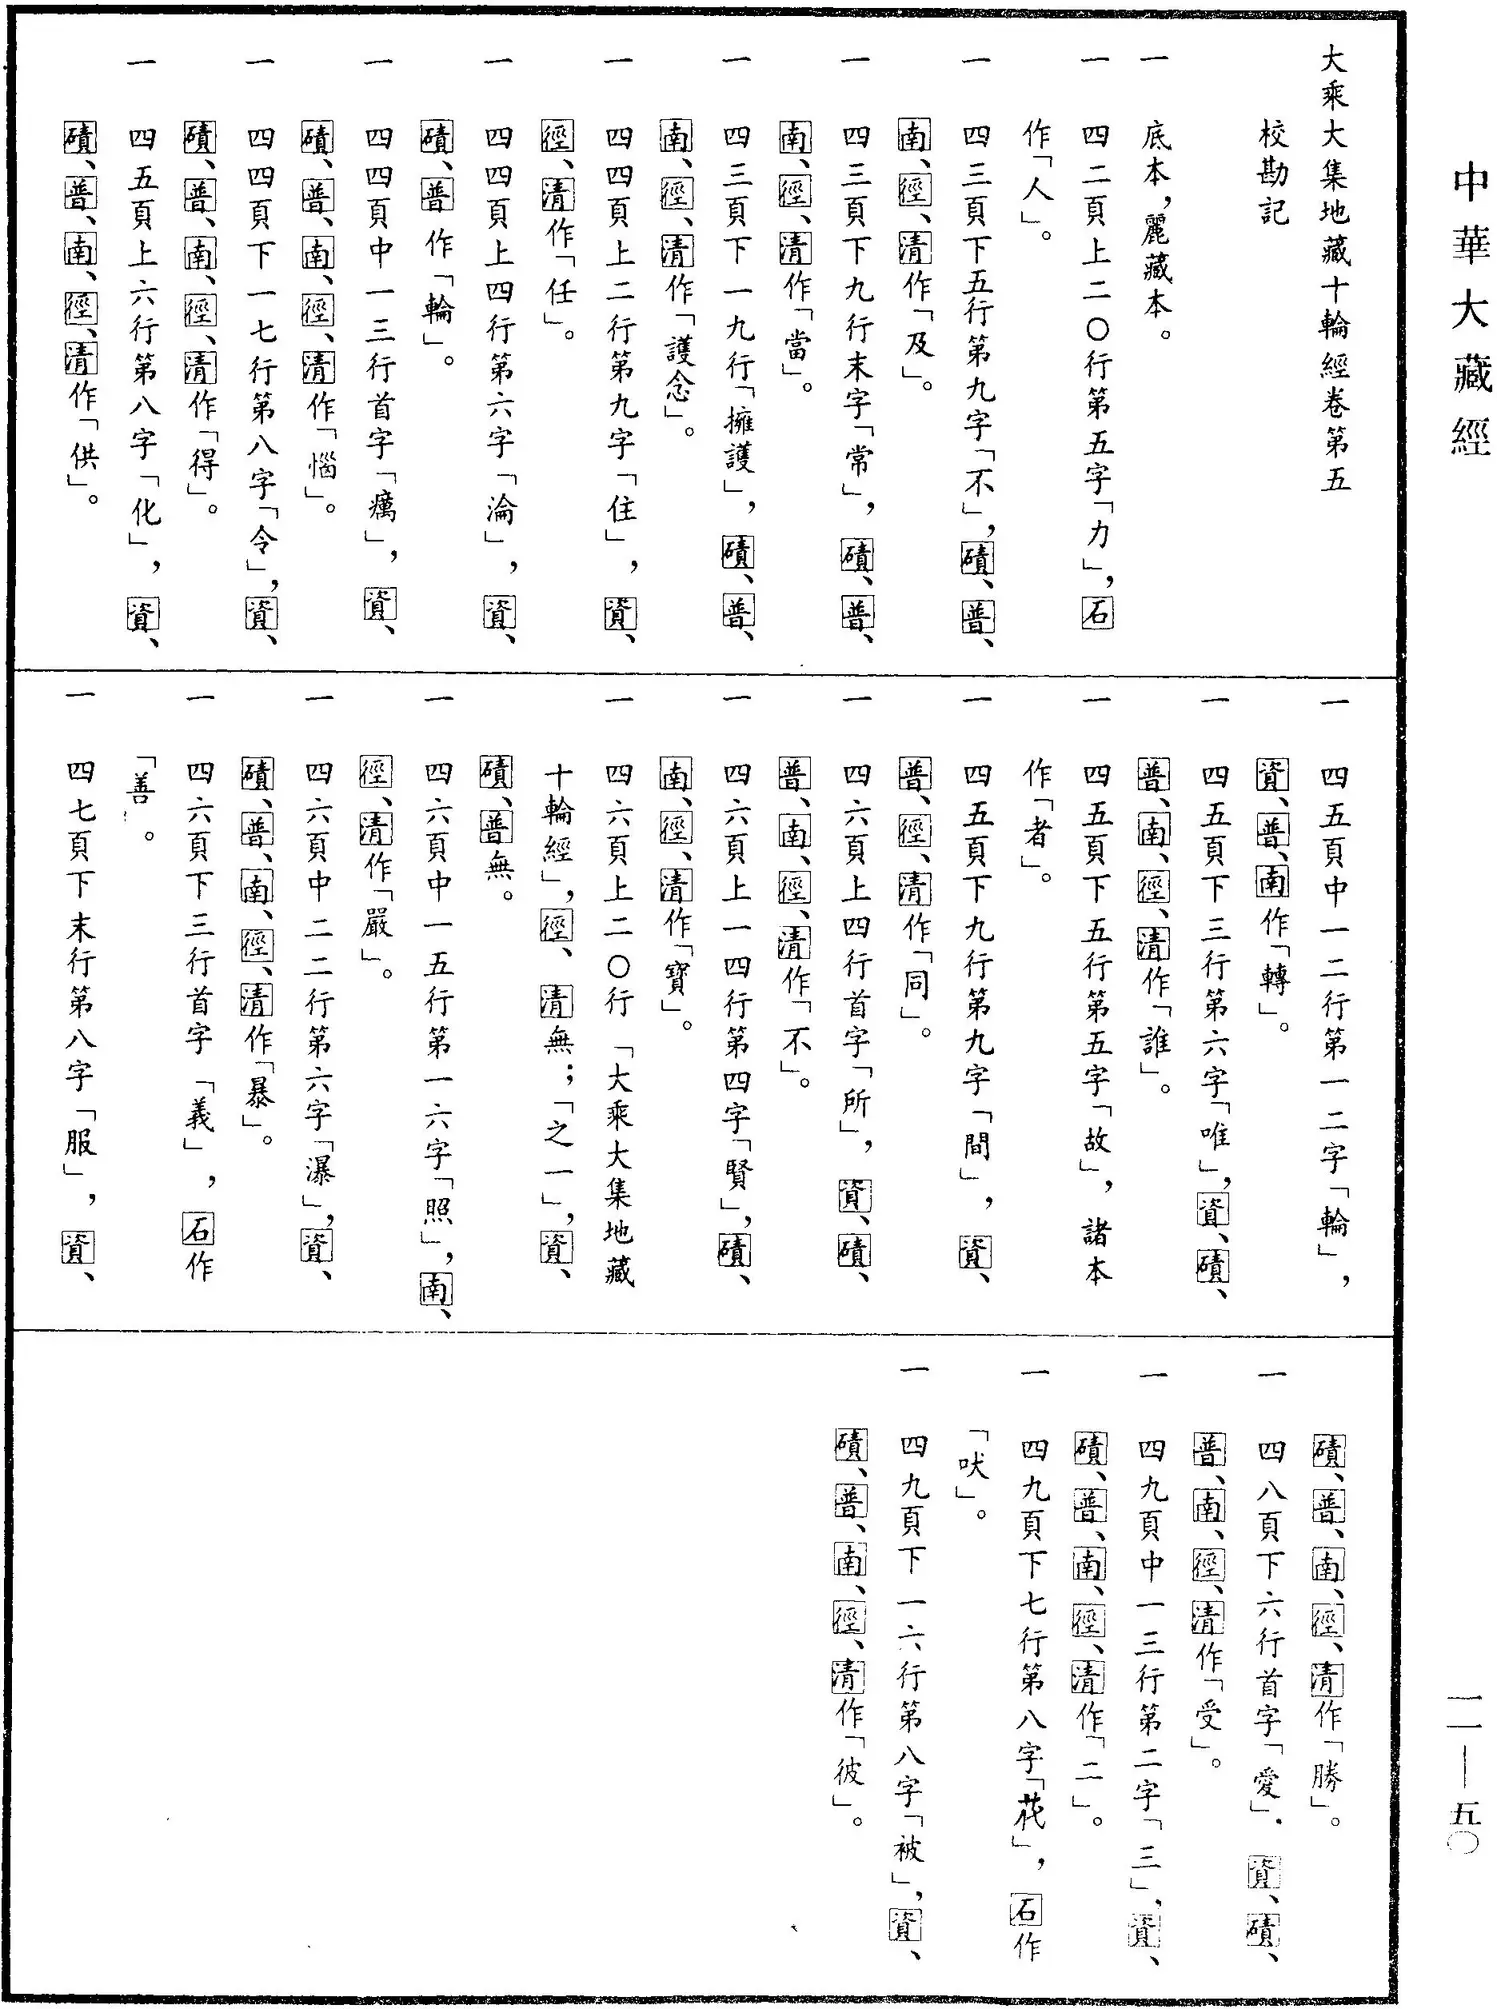 中華大藏經
大乘大集地藏十輪經卷第五
校勘記
一 底本，麗藏本。
一 四二頁上二〇行第五字「力」，石
作「人」。
一 四三頁下五行第九字「不」，磧、普、
南、徑、清作「及」。
一 四三頁下九行末字「常」，磧、普、
南、徑、清作「當」。
一 四三頁下一九行「擁護」，磧、普、
南、徑、清作「護念」。
一 四四頁上二行第九字「住」，資、
徑、清作「任」。
一 四四頁上四行第六字「淪」，資、
磧、普作「輪」。
一 四四頁中一三行首字「癘」，資、
磧、普、南、徑、清作「惱」。
一 四四頁下一七行第八字「令」，資、
磧、普、南、徑、清作「得」。
一 四五頁上六行第八字「化」，資、
磧、普、南、徑、清作「供」。
一 四五頁中一二行第一二字「輪」，
資、普、南作「轉」。
一 四五頁下三行第六字「唯」，資、磧、
普、南、徑、清作「誰」。
一 四五頁下五行第五字「故」，諸本
作「者」。
一 四五頁下九行第九字「間」，資、
普、徑、清作「同」。
一 四六頁上四行首字「所」，資、磧、
普、南、徑、清作「不」。
一 四六頁上一四行第四字「賢」，磧、
南、徑、清作「寶」。
一 四六頁上二〇行「大乘大集地藏
十輪經」，徑、清無；「之一」，資、
磧、普無。
一 四六頁中一五行第一六字「照」，南、
徑、清作「嚴」。
一 四六頁中二二行第六字「瀑」，資、
磧、普、南、徑、清作「暴」。
一 四六頁下三行首字「義」，石作
「善。
一 四七頁下末行第八字「服」，資、
磧、普、南、徑、清作「勝」。
一 四八頁下六行首字「愛」．資、磧、
普、南、徑、清作「受」。
一 四九頁中一三行第二字「三」，資、
磧、普、南、徑、清作「二」。
一 四九頁下七行第八字「花」，石作
「吠」。
一 四九頁下一六行第八字「被」，資、
磧、普、南、徑、清作「彼」。
一一—五〇